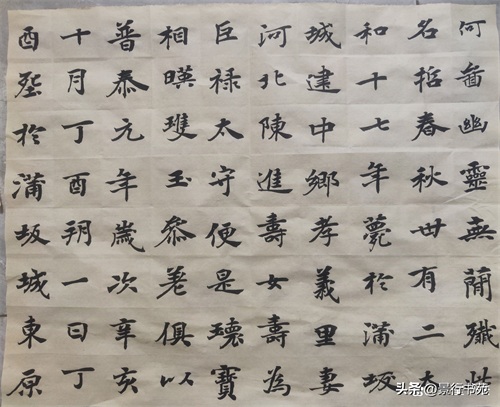 何啚幽靈無蕳殲此
名哲春秋卅有二太
和十七年薨於蒲坂
城建中鄉孝義里妻
河北陳進壽女壽為
巨祿太守便是瓌寶
相暎瓊玉參差俱以
普泰元年歲次辛亥
十月丁酉朔一日丁
酉塟於蒲坂城東原
头条 @景行书苑